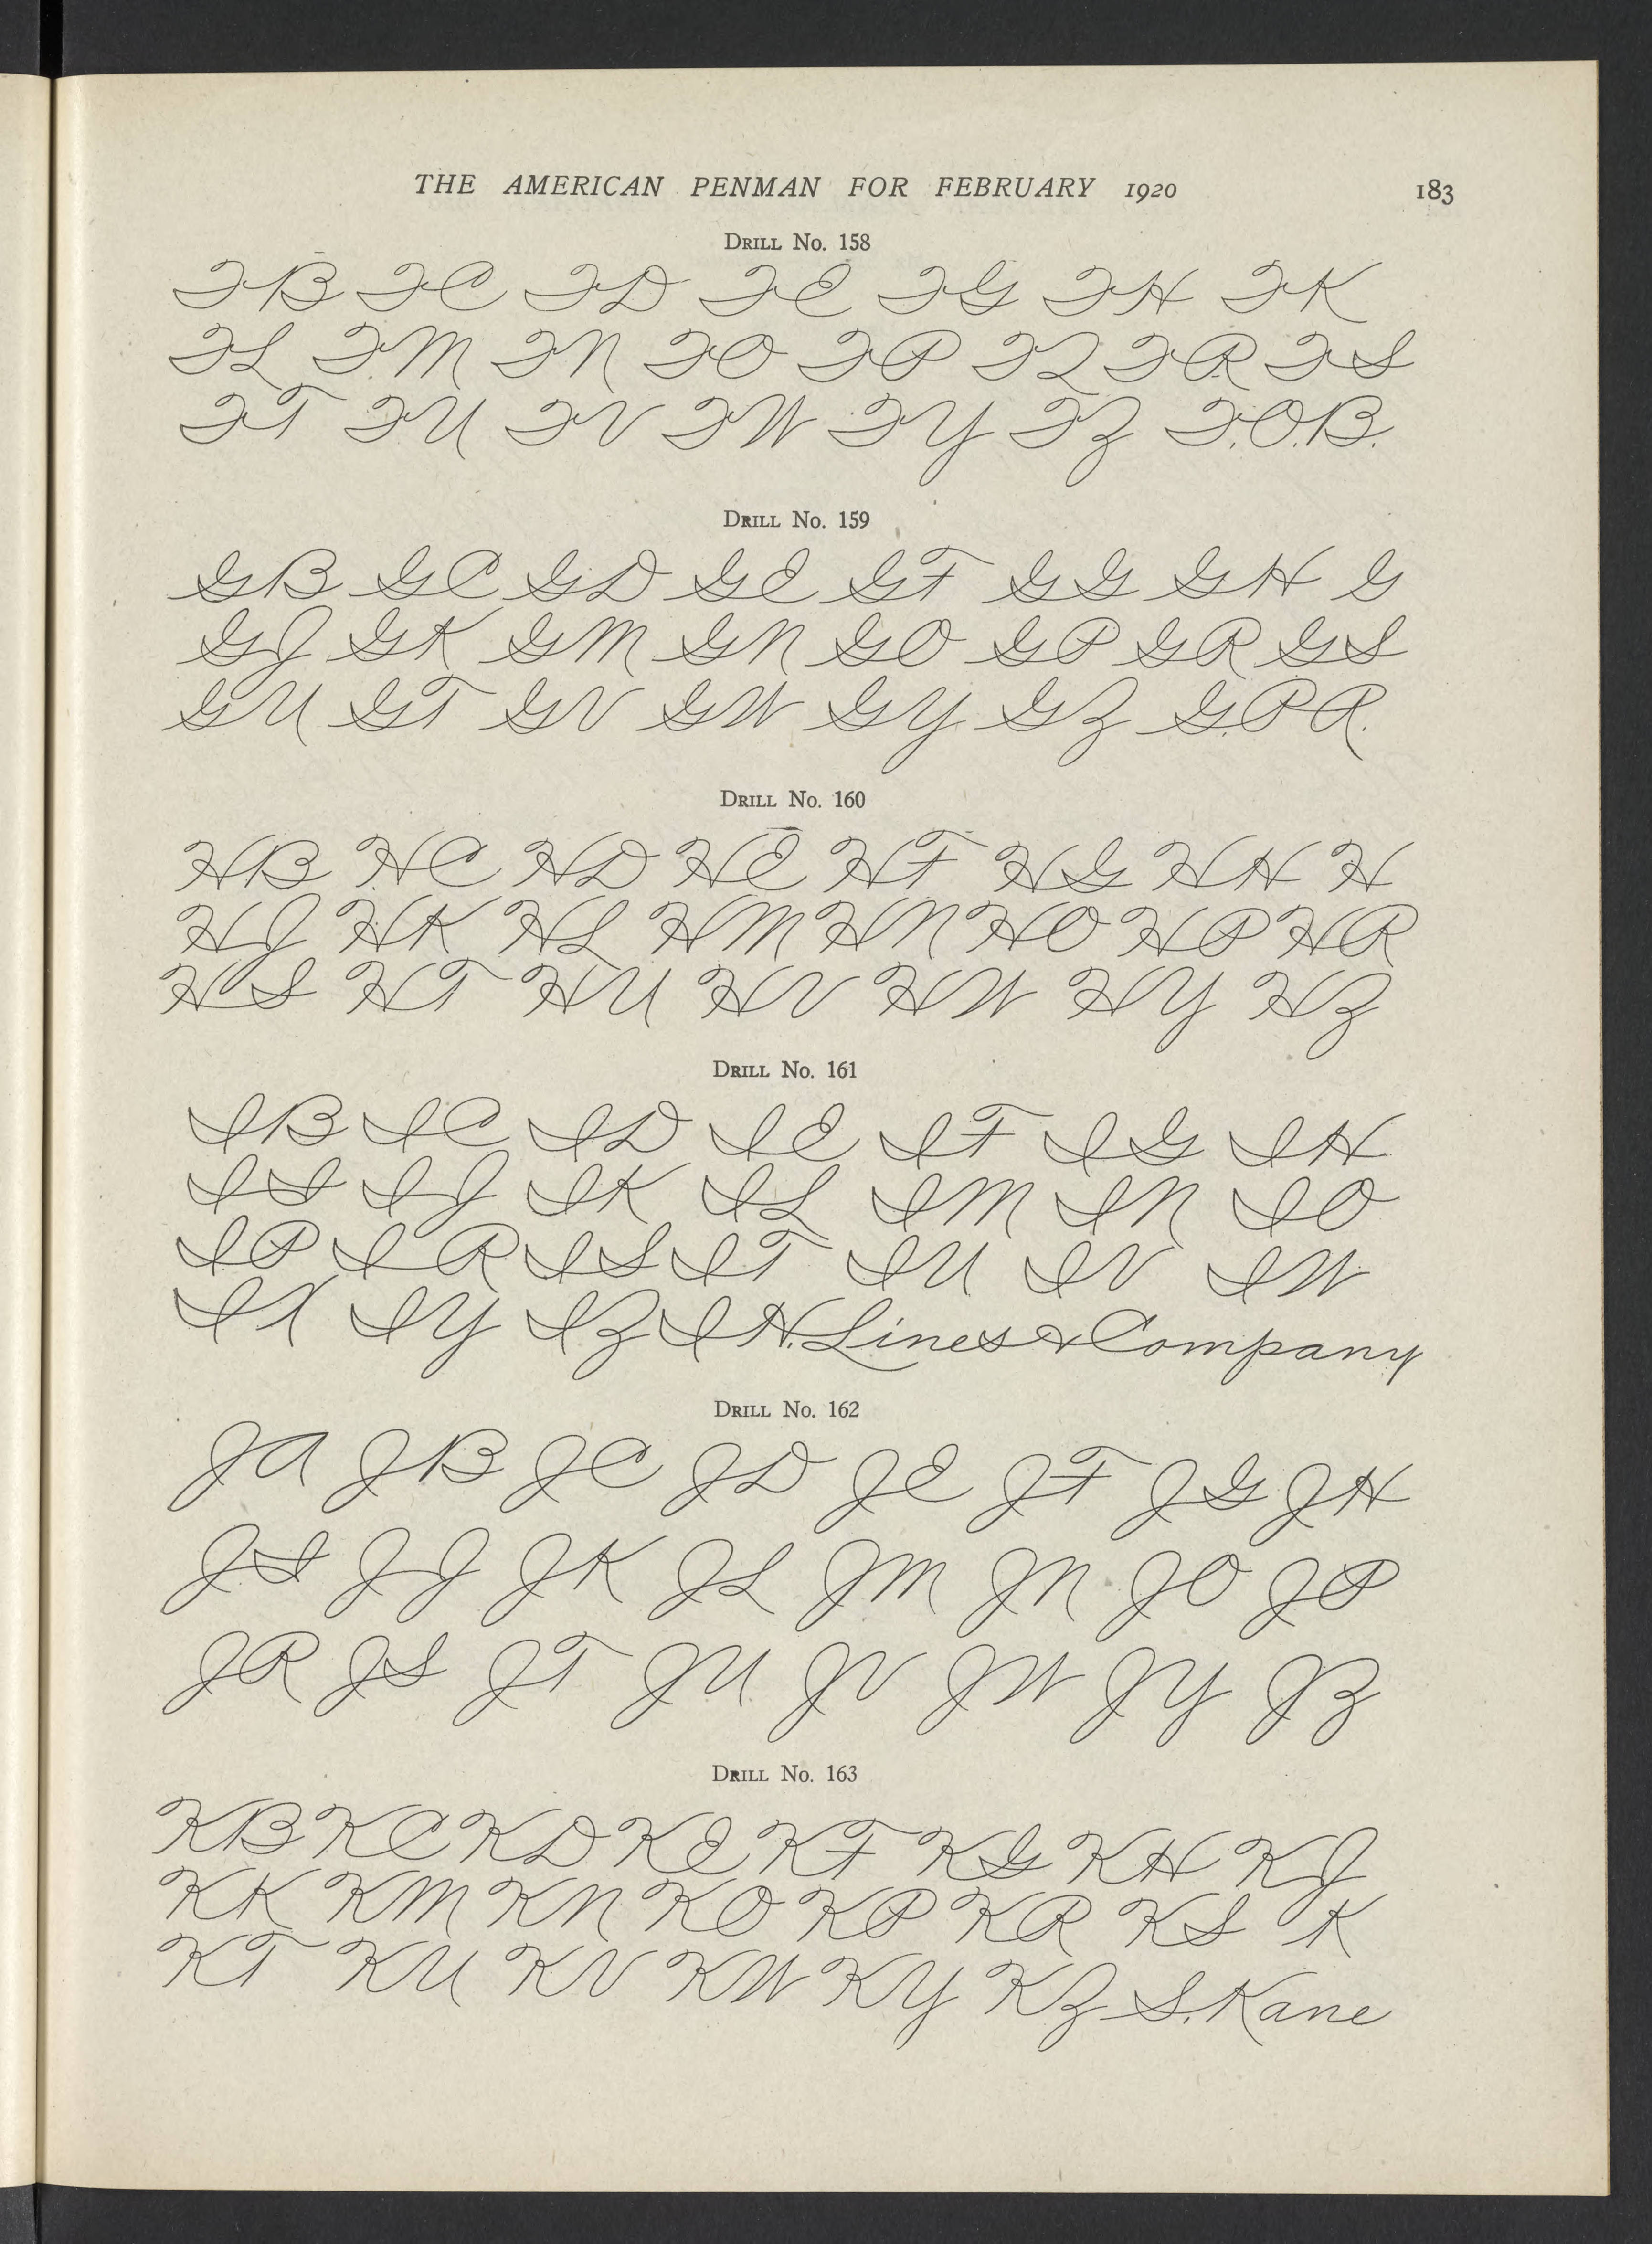 THE AMERICAN PENMAN FOR FEBRUARY 1920 183
DRILL No. 158
FB FC FD FE FG FH FK
FL FM FN FO FP FQ FR FS
FT FU FV FW FY FZ F.O.B.
DRILL No. 159
GB GC GD GE GF GG GH G
GJ GK GM GN GO GP GR GS
GU GT GV GW GY GZ G.P.A.
DRILL No. 160
HB HC HD HE HF HG HH H
HJ HK HL HM HN HO HP HR
HS HT HU HV HW HY HZ
DRILL No. 161
IB IC ID IE IF IG IH
II IJ IK IL IM IN IO
IP IR IS IT IU IV IW
IX IY IZ I H. Lines & Company
DRILL No. 162
JA JB JC JD JE JF JG JH
JI JJ JK JL JM JN JO JP
JR JS JT JU JV JW JY JZ
DRILL No. 163
KB KC KD KE KF KG KH KJ
KK KM KN KO KP KR KS K
KT KU KV KW KY KZ S. Kane